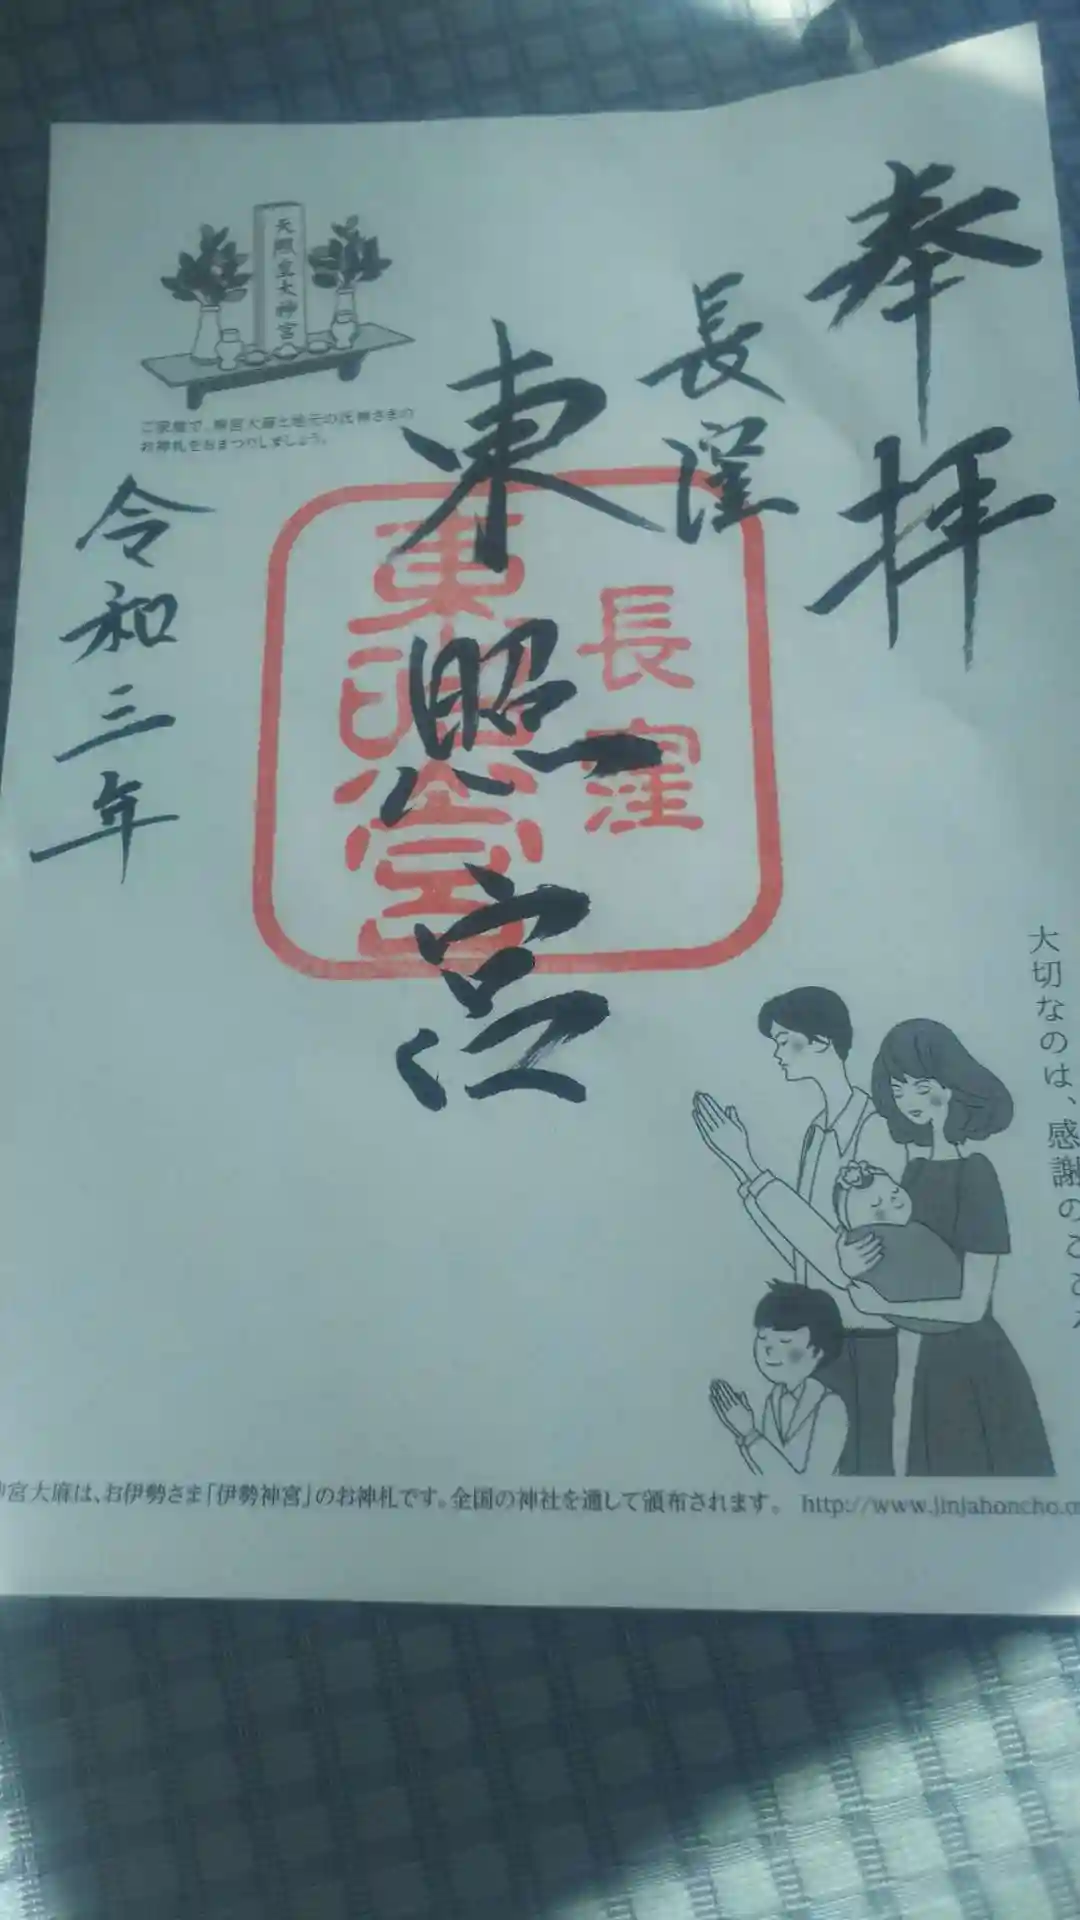 奉拝
長窪
東照宮
令和三年
長窪
東照宮
天照皇大神宮
ご家庭で、神宮大麻と地元の氏神さまの
お神札をおまつりしましょう。
大切なのは、感謝のこころ
神宮大麻は、お伊勢さま「伊勢神宮」のお神札です。全国の神社を通して頒布されます。 http://www.jinjahoncho.o